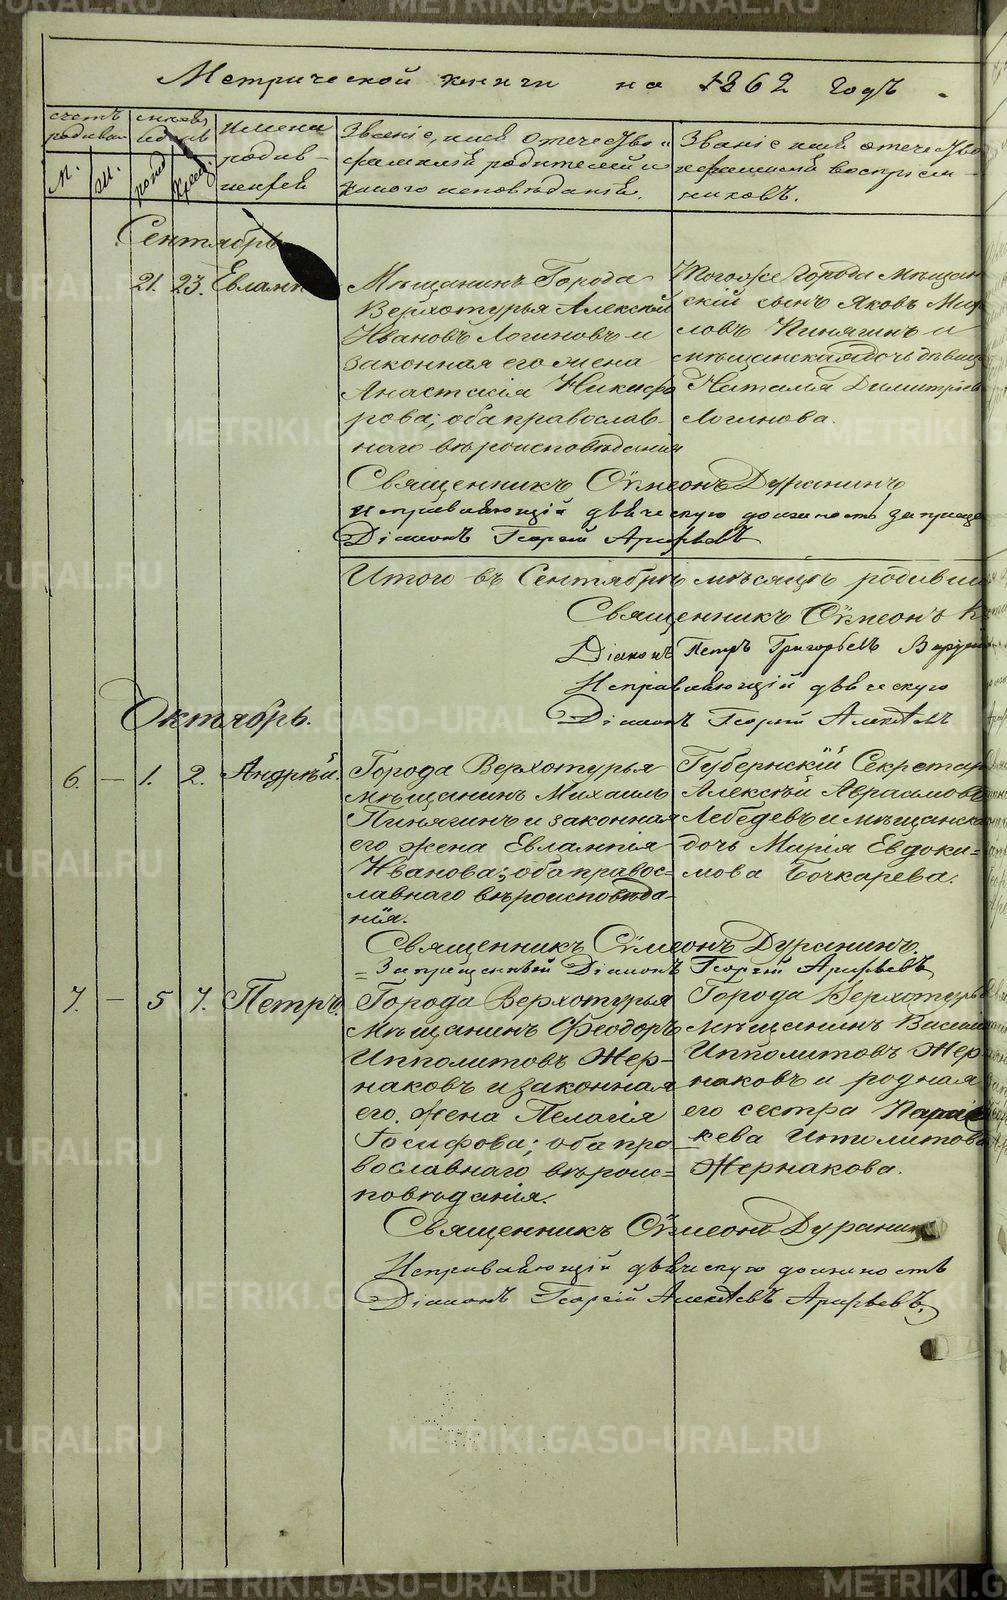 Метрической книги на 1862 годъ.
счетъ родивш.
М.
Ж.
мѣсяцъ и день
рожд.
крещ.
Имена родив-
шихся
Званіе, имя отечество и
фамилія родителей и
какого исповѣданія.
Званіе имя отечество
и фамилія воспріем-
никовъ.
Сентябрь
21. 23. Евламп
Мѣщанинъ Города
Верхотурья Алексѣй
Ивановъ Логиновъ и
законная его жена
Анастасія Никифо
рова; оба православ-
наго вѣроисповѣданія
Тогоже Города мѣщан
скій сынъ Яковъ Ми
ловъ Пинягинъ и
мѣщанская дочь дѣвица
Наталья Димитріева
Логинова.
Священникъ Сѵмеонъ Дуранинъ
Исправляющій дьяческую должность запреще
Діаконъ Георгій Арефьевъ
Итого въ Сентябрѣ мѣсяцѣ родивши
Священникъ Сѵмеонъ
Діаконъ Петръ Григорьевъ
Исправляющій дьяческую
Діаконъ Георгій Алексѣевъ
Октябрь.
6. — 1. 2. Андрѣй.
Города Верхотурья
мѣщанинъ Михаилъ
Пинягинъ и законная
его жена Евлампія
Иванова; оба правос-
лавнаго вѣроисповѣда-
нія.
Губернскій Секретарь
Алексѣй Авраамовъ
Лебедевъ и мѣщанская
дочь Марія Евдоки=
мова Бочкарева.
Священникъ Сѵмеонъ Дуранинъ.
Запрещенный Діаконъ Георгій Арефьевъ
7. — 5 7. Петръ.
Города Верхотурья
Мѣщанинъ Феодоръ
Ипполитовъ Жер-
наковъ и законная
его жена Пелагія
Іосифова; оба пра-
вославнаго вѣроис=
повѣданія.
Города Верхотурья
мѣщанинъ Васили
Ипполитовъ Жер-
наковъ и родная
его сестра Парас
кева Ипполитова
Жернакова.
Священникъ Сѵмеонъ Дуранинъ
Исправляющій дьяческую должность
Діаконъ Георгій Алексѣевъ Арефьевъ.